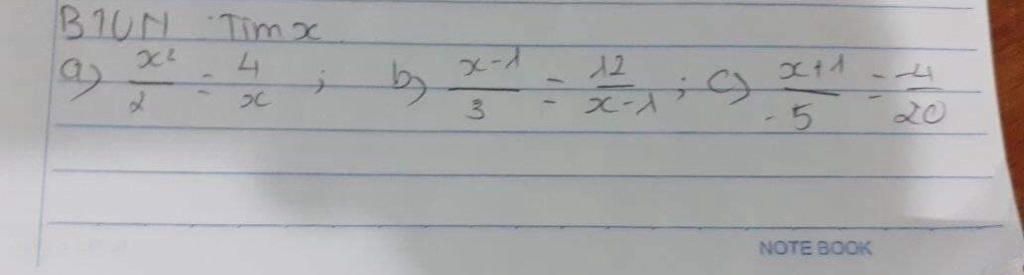 BTVN : Tìm x
a) x²/2 = 4/x ; b) x-1/3 = 12/x-1 ; c) x+1/-5 = -4/20
NOTE BOOK